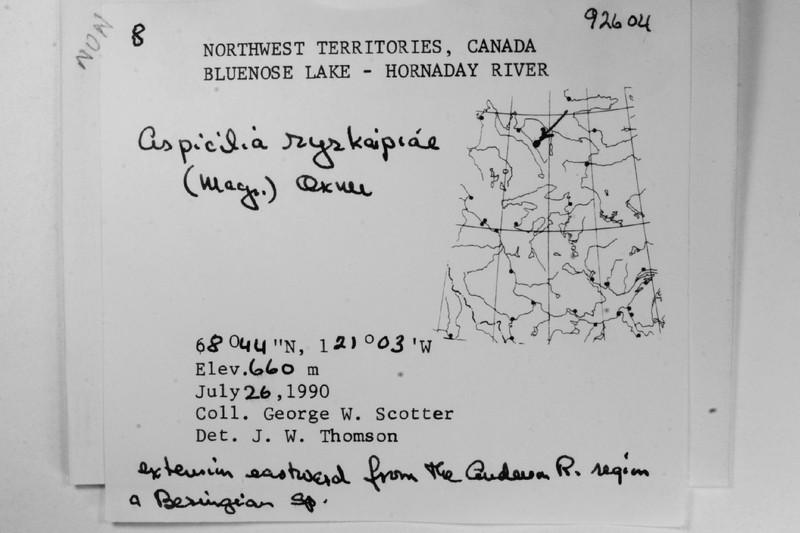 NON
8
92604
NORTHWEST TERRITORIES, CANADA
BLUENOSE LAKE - HORNADAY RIVER
Aspicilia ryrkaipiae
(Magn.) Oxner
68°44"N, 121°03'W
Elev. 660 m
July 26, 1990
Coll. George W. Scotter
Det. J. W. Thomson
extension eastward from the Anderson R. region
a Beringian sp.